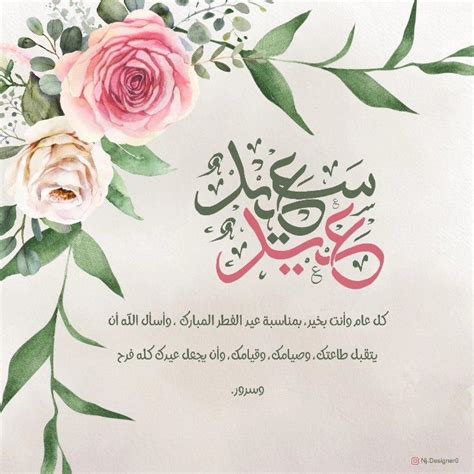 سعيد
عيد
كل عام وأنت بخير، بمناسبة عيد الفطر المبارك ، وأسأل الله أن
يتقبل طاعتك، وصيامك، وقيامك، وأن يجعل عيدك كله فرح
وسرور.
Nj.Designer0